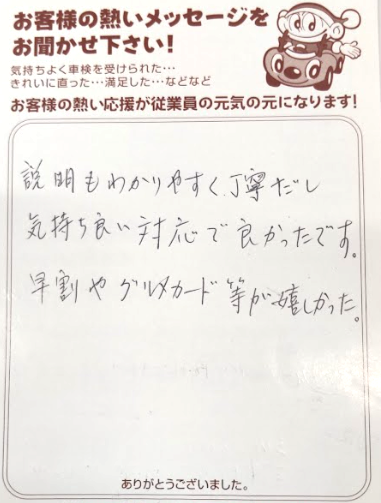 お客様の熱いメッセージを
お聞かせ下さい!
気持ちよく車検を受けられた…
きれいに直った…満足した…などなど
お客様の熱い応援が従業員の元気の元になります!
説明もわかりやすく、丁寧だし
気持ち良い対応で良かったです。
早割やグルメカード等が嬉しかった。
ありがとうございました。